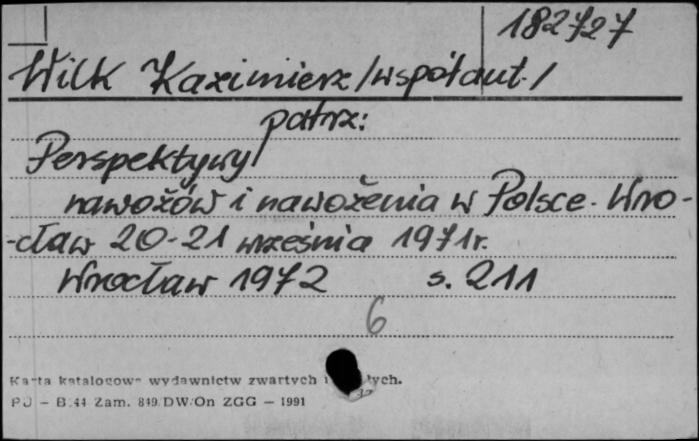 182727
Wilk Kazimierz /współaut./
patrz:
Perspektywy
nawozów i nawożenia w Polsce. Wro-
-cław 20-21 września 1971r.
Wrocław 1972 s. 211
6
Karta katalogowa wydawnictw zwartych i
PU - B.44 Zam. 849/DW/On ZGG - 1991